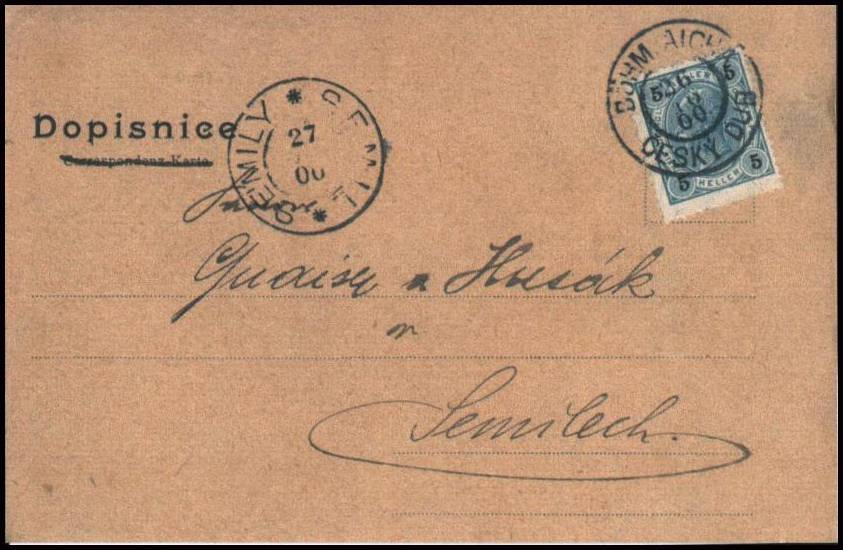 Dopisnice
Correspondenz-Karte
SEMIL * SEMILY *
27
00
BÖHM. AICHA
ČESKÝ DUB
26
00
5 5
HELLER
5 5
HELLER
a Husák
v
Semilech.